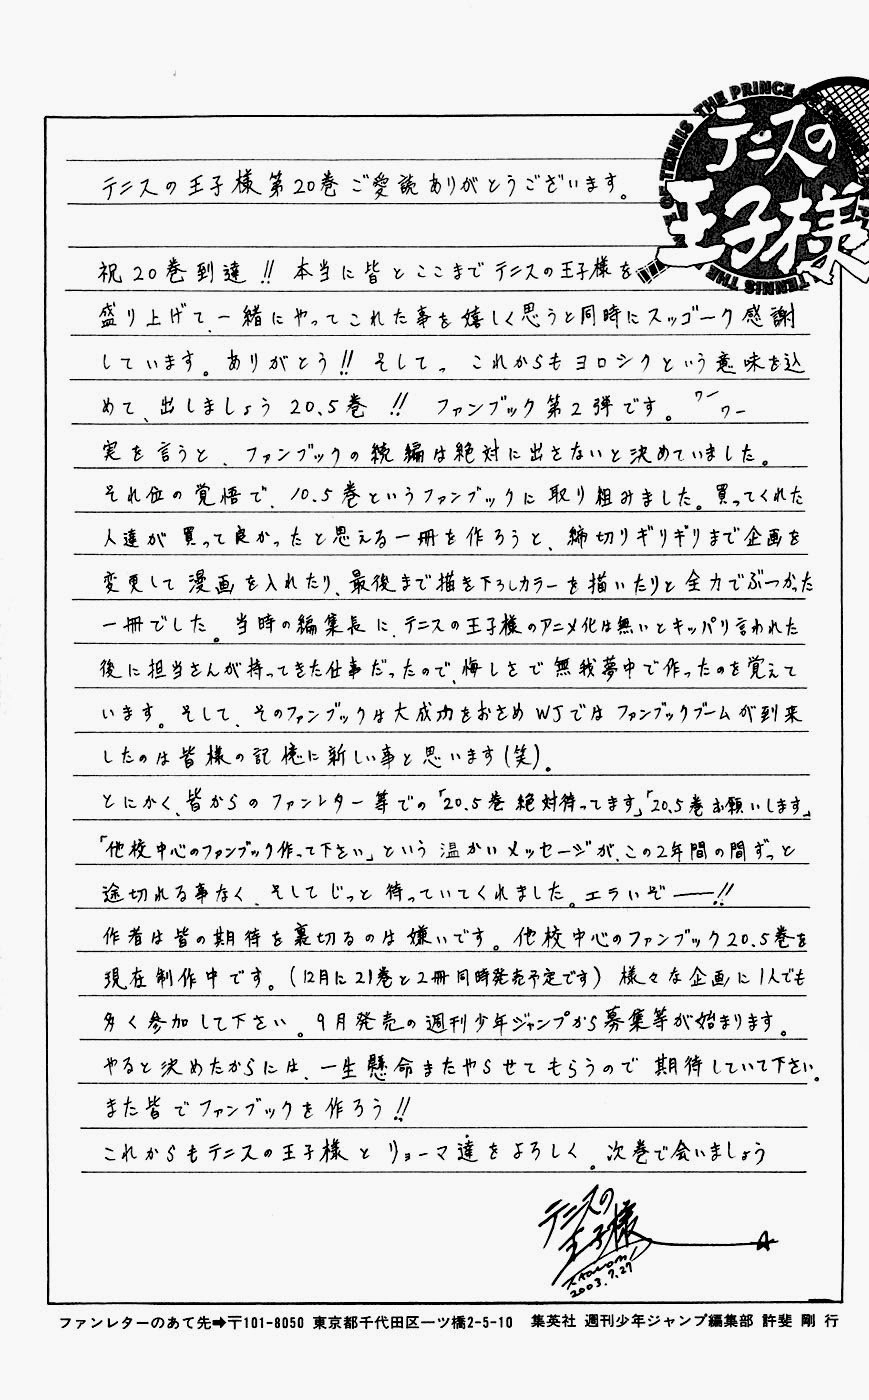 THE PRINCE OF TENNIS
テニスの
王子様
テニスの王子様第20巻ご愛読ありがとうございます。
祝20巻到達!! 本当に皆とここまでテニスの王子様を
盛り上げて、一緒にやってこれた事を嬉しく思うと同時にスッゴーク感謝
しています。ありがとう!! そしてっ これからもヨロシクという意味を込
めて、出しましょう20.5巻!! ファンブック第2弾です。ワーワー
実を言うと、ファンブックの続編は絶対に出さないと決めていました。
それ位の覚悟で、10.5巻というファンブックに取り組みました。買ってくれた
人達が買って良かったと思える一冊を作ろうと、締切りギリギリまで企画を
変更して漫画を入れたり、最後まで描き下ろしカラーを描いたりと全力でぶつかった
一冊でした。当時の編集長に、テニスの王子様のアニメ化は無いとキッパリ言われた
後に担当さんが持ってきた仕事だったので、悔しさで無我夢中で作ったのを覚えて
います。そして、そのファンブックは大成功をおさめWJではファンブックブームが到来
したのは皆様の記憶に新しい事と思います(笑)。
とにかく、皆からのファンレター等での「20.5巻絶対待ってます」「20.5巻お願いします」
「他校中心のファンブック作って下さい」という温かいメッセージが、この2年間の間ずっと
途切れる事なく、そしてじっと待っていてくれました。エラいぞ——!!
作者は皆の期待を裏切るのは嫌いです。他校中心のファンブック20.5巻を
現在制作中です。(12月に21巻と2冊同時発売予定です)様々な企画に1人でも
多く参加して下さい。9月発売の週刊少年ジャンプから募集等が始まります。
やると決めたからには、一生懸命またやらせてもらうので期待していて下さい。
また皆でファンブックを作ろう!!
これからもテニスの王子様とリョーマ達をよろしく。次巻で会いましょう
テニスの
王子様
2003.7.27
ファンレターのあて先➡〒101-8050 東京都千代田区一ツ橋2-5-10 集英社 週刊少年ジャンプ編集部 許斐 剛 行